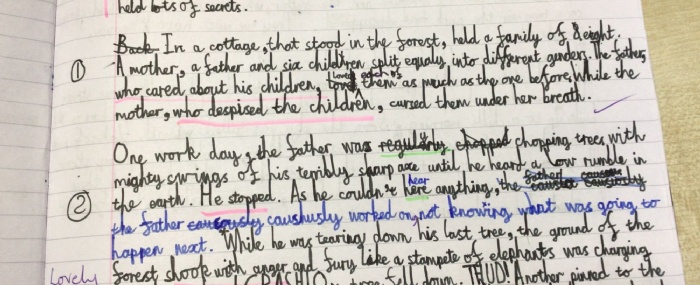 held lots of secrets.
① Back In a cottage, that stood in the forest, held a family of 8 eight.
A mother, a father and six children split equally into different genders. The father,
who cared about his children, loved each of them as much as the one before, while the
mother, who despised the children, cursed them under her breath.
One work day, the father was regularly chopped chopping trees with
mighty swings of his terribly sharp axe until he heard a low rumble in
② the earth. He stopped. As he couldn't here hear anything, the
the father caushusly worked on, not knowing what was going to
happen next. While he was tearing down his last tree, the ground of the
Lovely forest shook with anger and fury like a stampete of elephants was charging
fell down. THUD! Another pinned to the